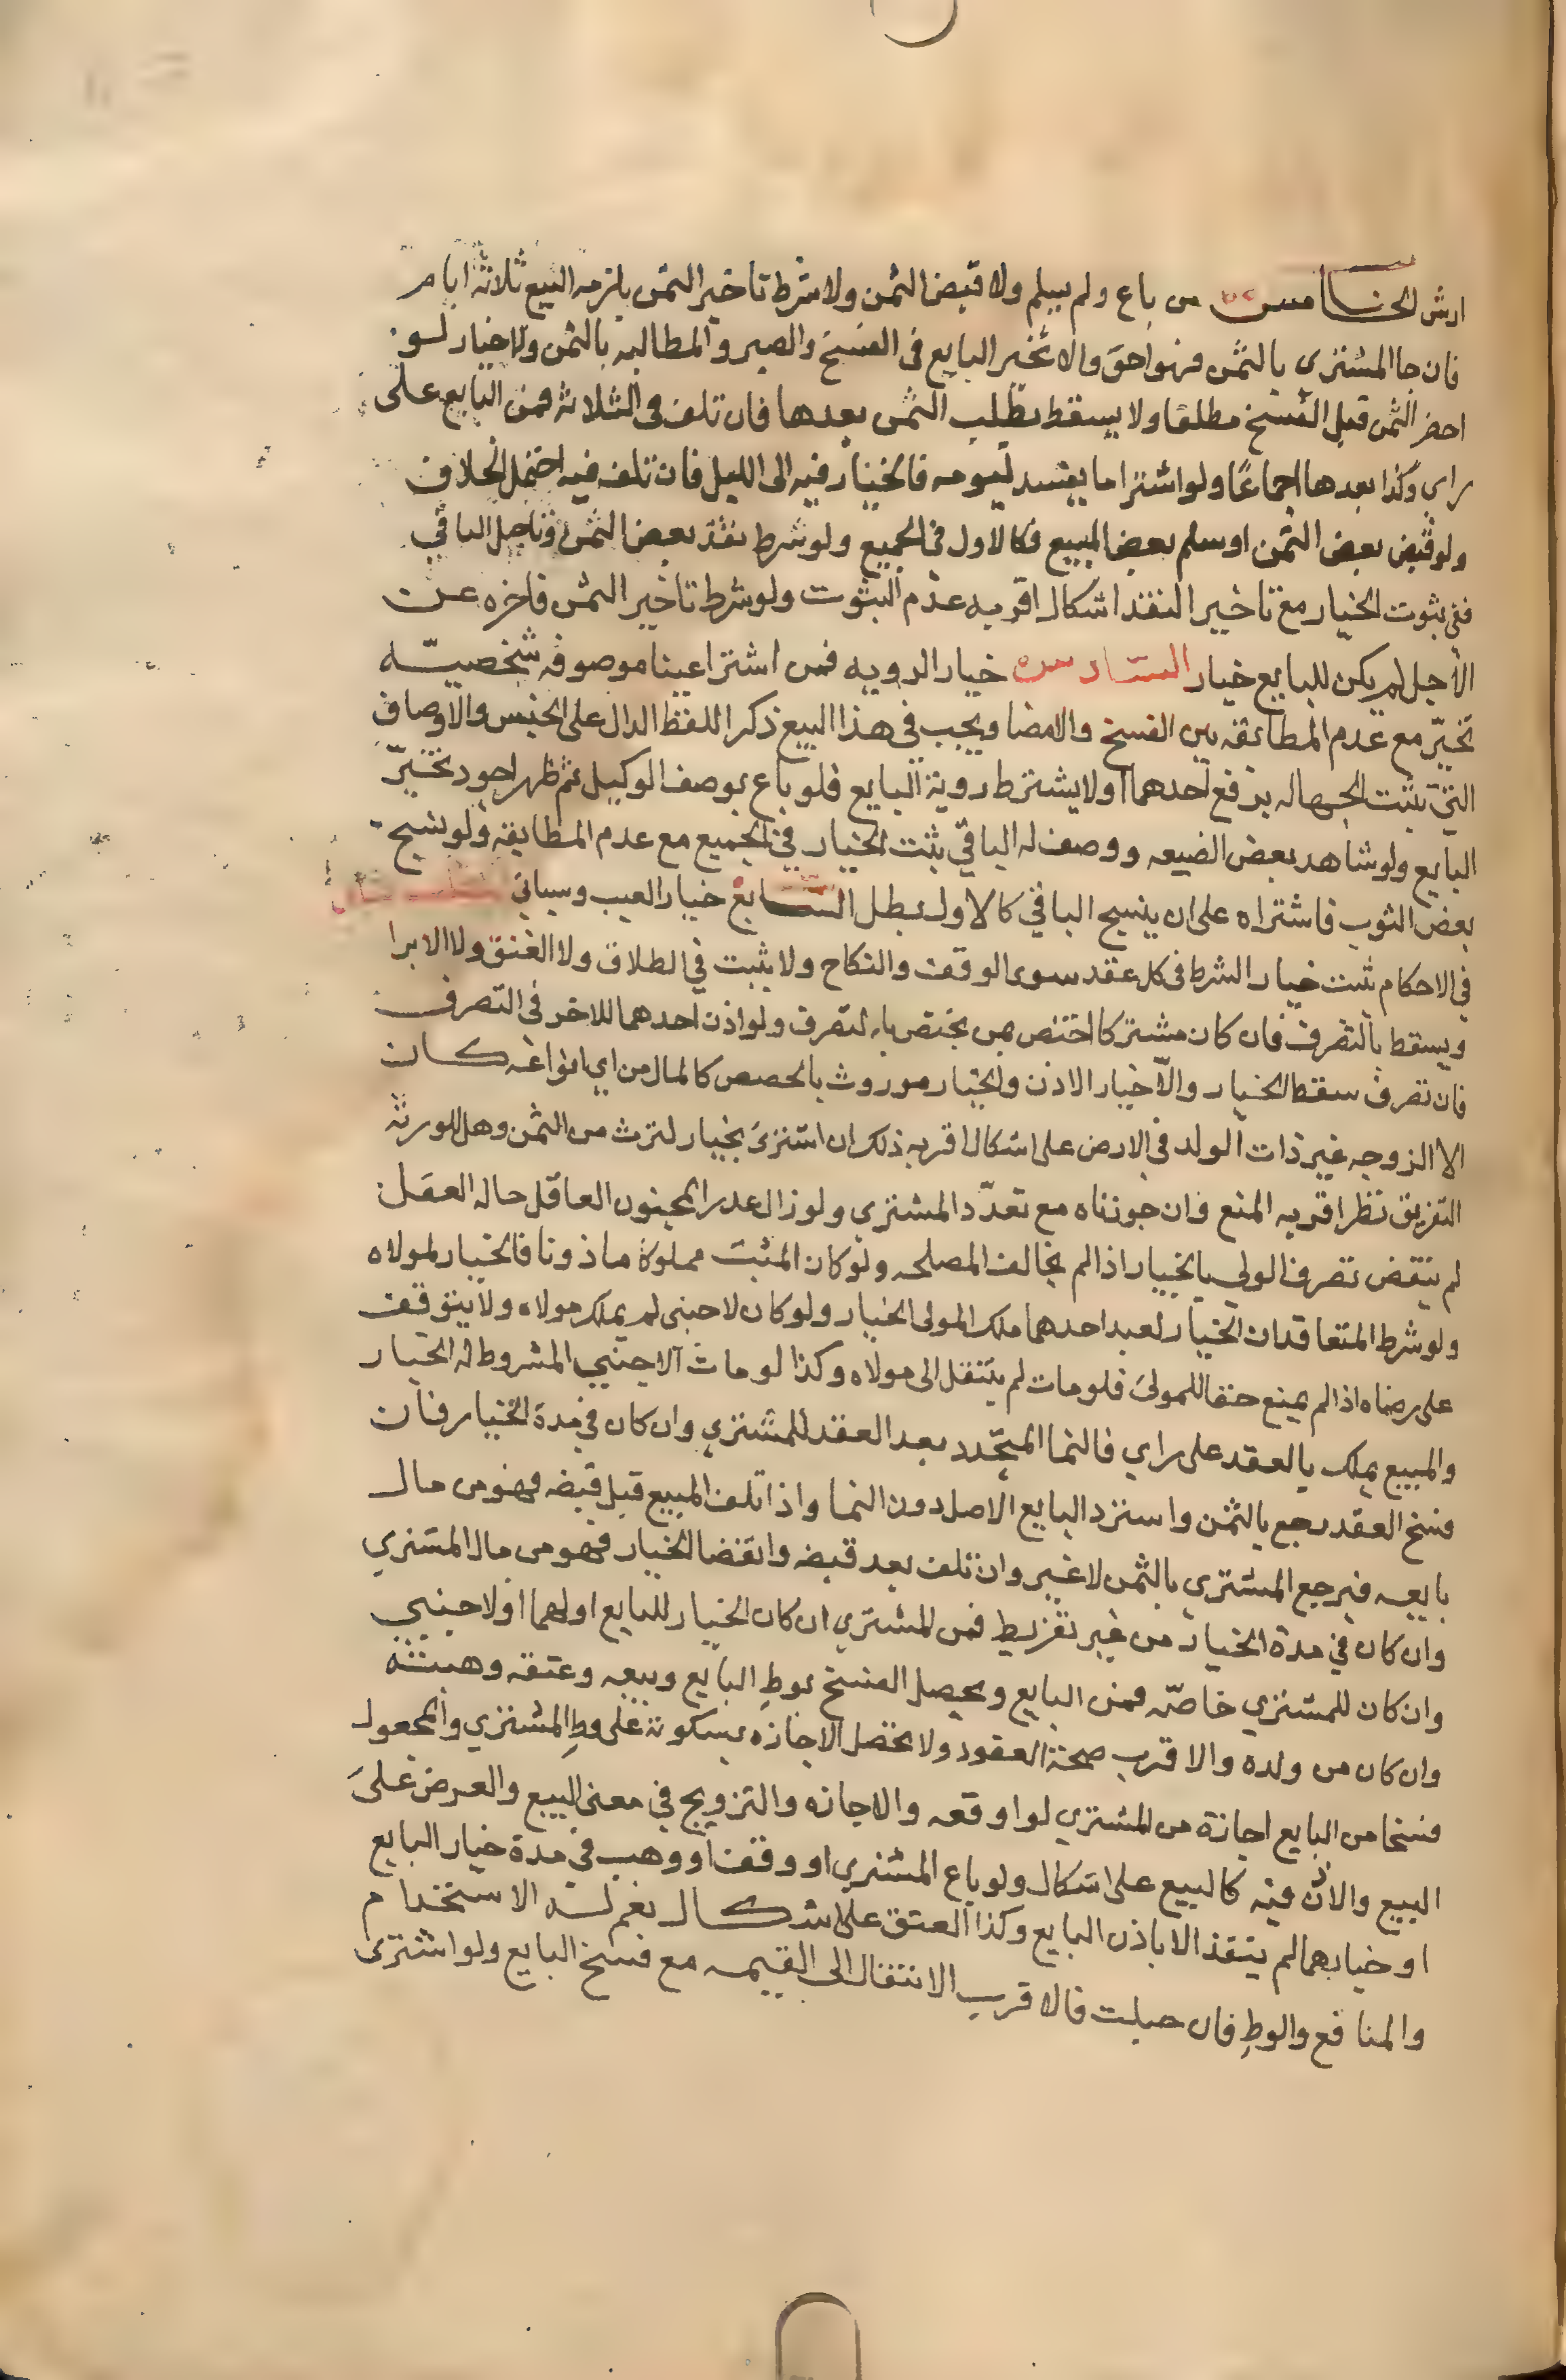 ارش الخامس من باع ولم يسلم ولا قبض الثمن ولا شرط تاخير الثمن يلزمه البيع ثلاثة ايام
فان جا المشتري بالثمن فهو احق والا تخير البايع في الفسخ والصبر والمطالبه بالثمن ولا خيار لو
احضر الثمن قبل الفسخ مطلقا ولا يسقط بطلب الثمن بعدها فان تلف في الثلاثة فمن البايع على
راي وكذا بعدها اجماعًا ولو اشترا ما يفسد ليومه فالخيار فيه الى الليل فان تلف فيه احتمل الخلاف
ولو قبض بعض الثمن او سلم بعض المبيع فكالاول في الجميع ولو شرط نقد بعض الثمن وتاجيل الباقي
ففي ثبوت الخيار مع تاخير النقد اشكال اقربه عدم الثبوت ولو شرط تاخير الثمن فاخره عن
الاجل لم يكن للبايع خيار السادس خيار الرويه فمن اشترا عينا موصوفه شخصيّه
تخيّر مع عدم المطابقه بين الفسخ والامضا ويجب في هذا البيع ذكر اللفظ الدال على الجنس والاوصاف
التي تثبت الجهاله برفع احدها ولا يشترط روية البايع فلو باع بوصف الوكيل ثم ظهر اجود تخيّر
البايع ولو شاهد بعض الضيعه ووصف له الباقي ثبت الخيار في الجميع مع عدم المطابقه ولو نسج
بعض الثوب فاشتراه على ان ينسج الباقي كالاول بطل السابع خيار العيب وسياتي
في الاحكام ثبت خيار الشرط في كل عقد سوى الوقف والنكاح ولا يثبت في الطلاق ولا العتق ولا الابرا
ويسقط بالتصرف فان كان مشتركا اختص بمن يختص بالتصرف ولو اذن احدهما للاخر في التصرف
فان تصرف سقط الخيار والّا خيار الاذن والخيار موروث بالحصص كالمال من اي انواعه كان
الا الزوجه غير ذات الولد في الارض على اشكال اقربه ذلك ان اشترى بخيار لترث من الثمن وهل للورثه
التفريق نظر اقربه المنع وان جوزناه مع تعدّد المشتري ولو زال عذر المجنون العاقل حاله العقل
لم ينتقض تصرف الولي بالخيار اذا لم يخالف المصلحه ولو كان المثبت مملوكا ماذونا فالخيار لمولاه
ولو شرط المتعاقدان الخيار لعبد احدهما ملك المولى الخيار ولو كان لاجنبي لم يملك مولاه ولا يتوقف
على رضاه اذا لم يمنع حقا للمولى فلو مات لم ينتقل الى مولاه وكذا لو مات الاجنبي المشروط له الخيار
والمبيع يملك بالعقد على راي فالنما المتجّدد بعد العقد للمشتري وان كان في مدة الخيار فان
فسخ العقد رجع بالثمن واسترد البايع الاصل دون النما واذا تلف المبيع قبل قبضه فهو من مال
بايعه فيرجع المشتري بالثمن لا غير وان تلف بعد قبضه وانقضا الخيار فهو من مال المشتري
وان كان في مدة الخيار من غير تفريط فمن المشتري ان كان الخيار للبايع او لهما او لاجنبي
وان كان للمشتري خاصّه فمن البايع ويحصل الفسخ بوطِ البايع وبيعه وعتقه وهبته
وان كان من ولده والاقرب صحة العقود ولا تحصل الاجازه بسكوته على وطِ المشتري والمجعول
فسخا من البايع اجازة من المشتري لو اوقعه والاجازه والتزويج في معنى البيع والعرض على
البيع والاذن فيه كالبيع على اشكال ولو باع المشتري او وقف او وهب في مدة خيار البايع
او خيارهما لم ينفذ الا باذن البايع وكذا العتق على اشكال نعم له الاستخدام
والمنافع والوطِ فان حبلت فالاقرب الانتقال الى القيمه مع فسخ البايع ولو اشترى